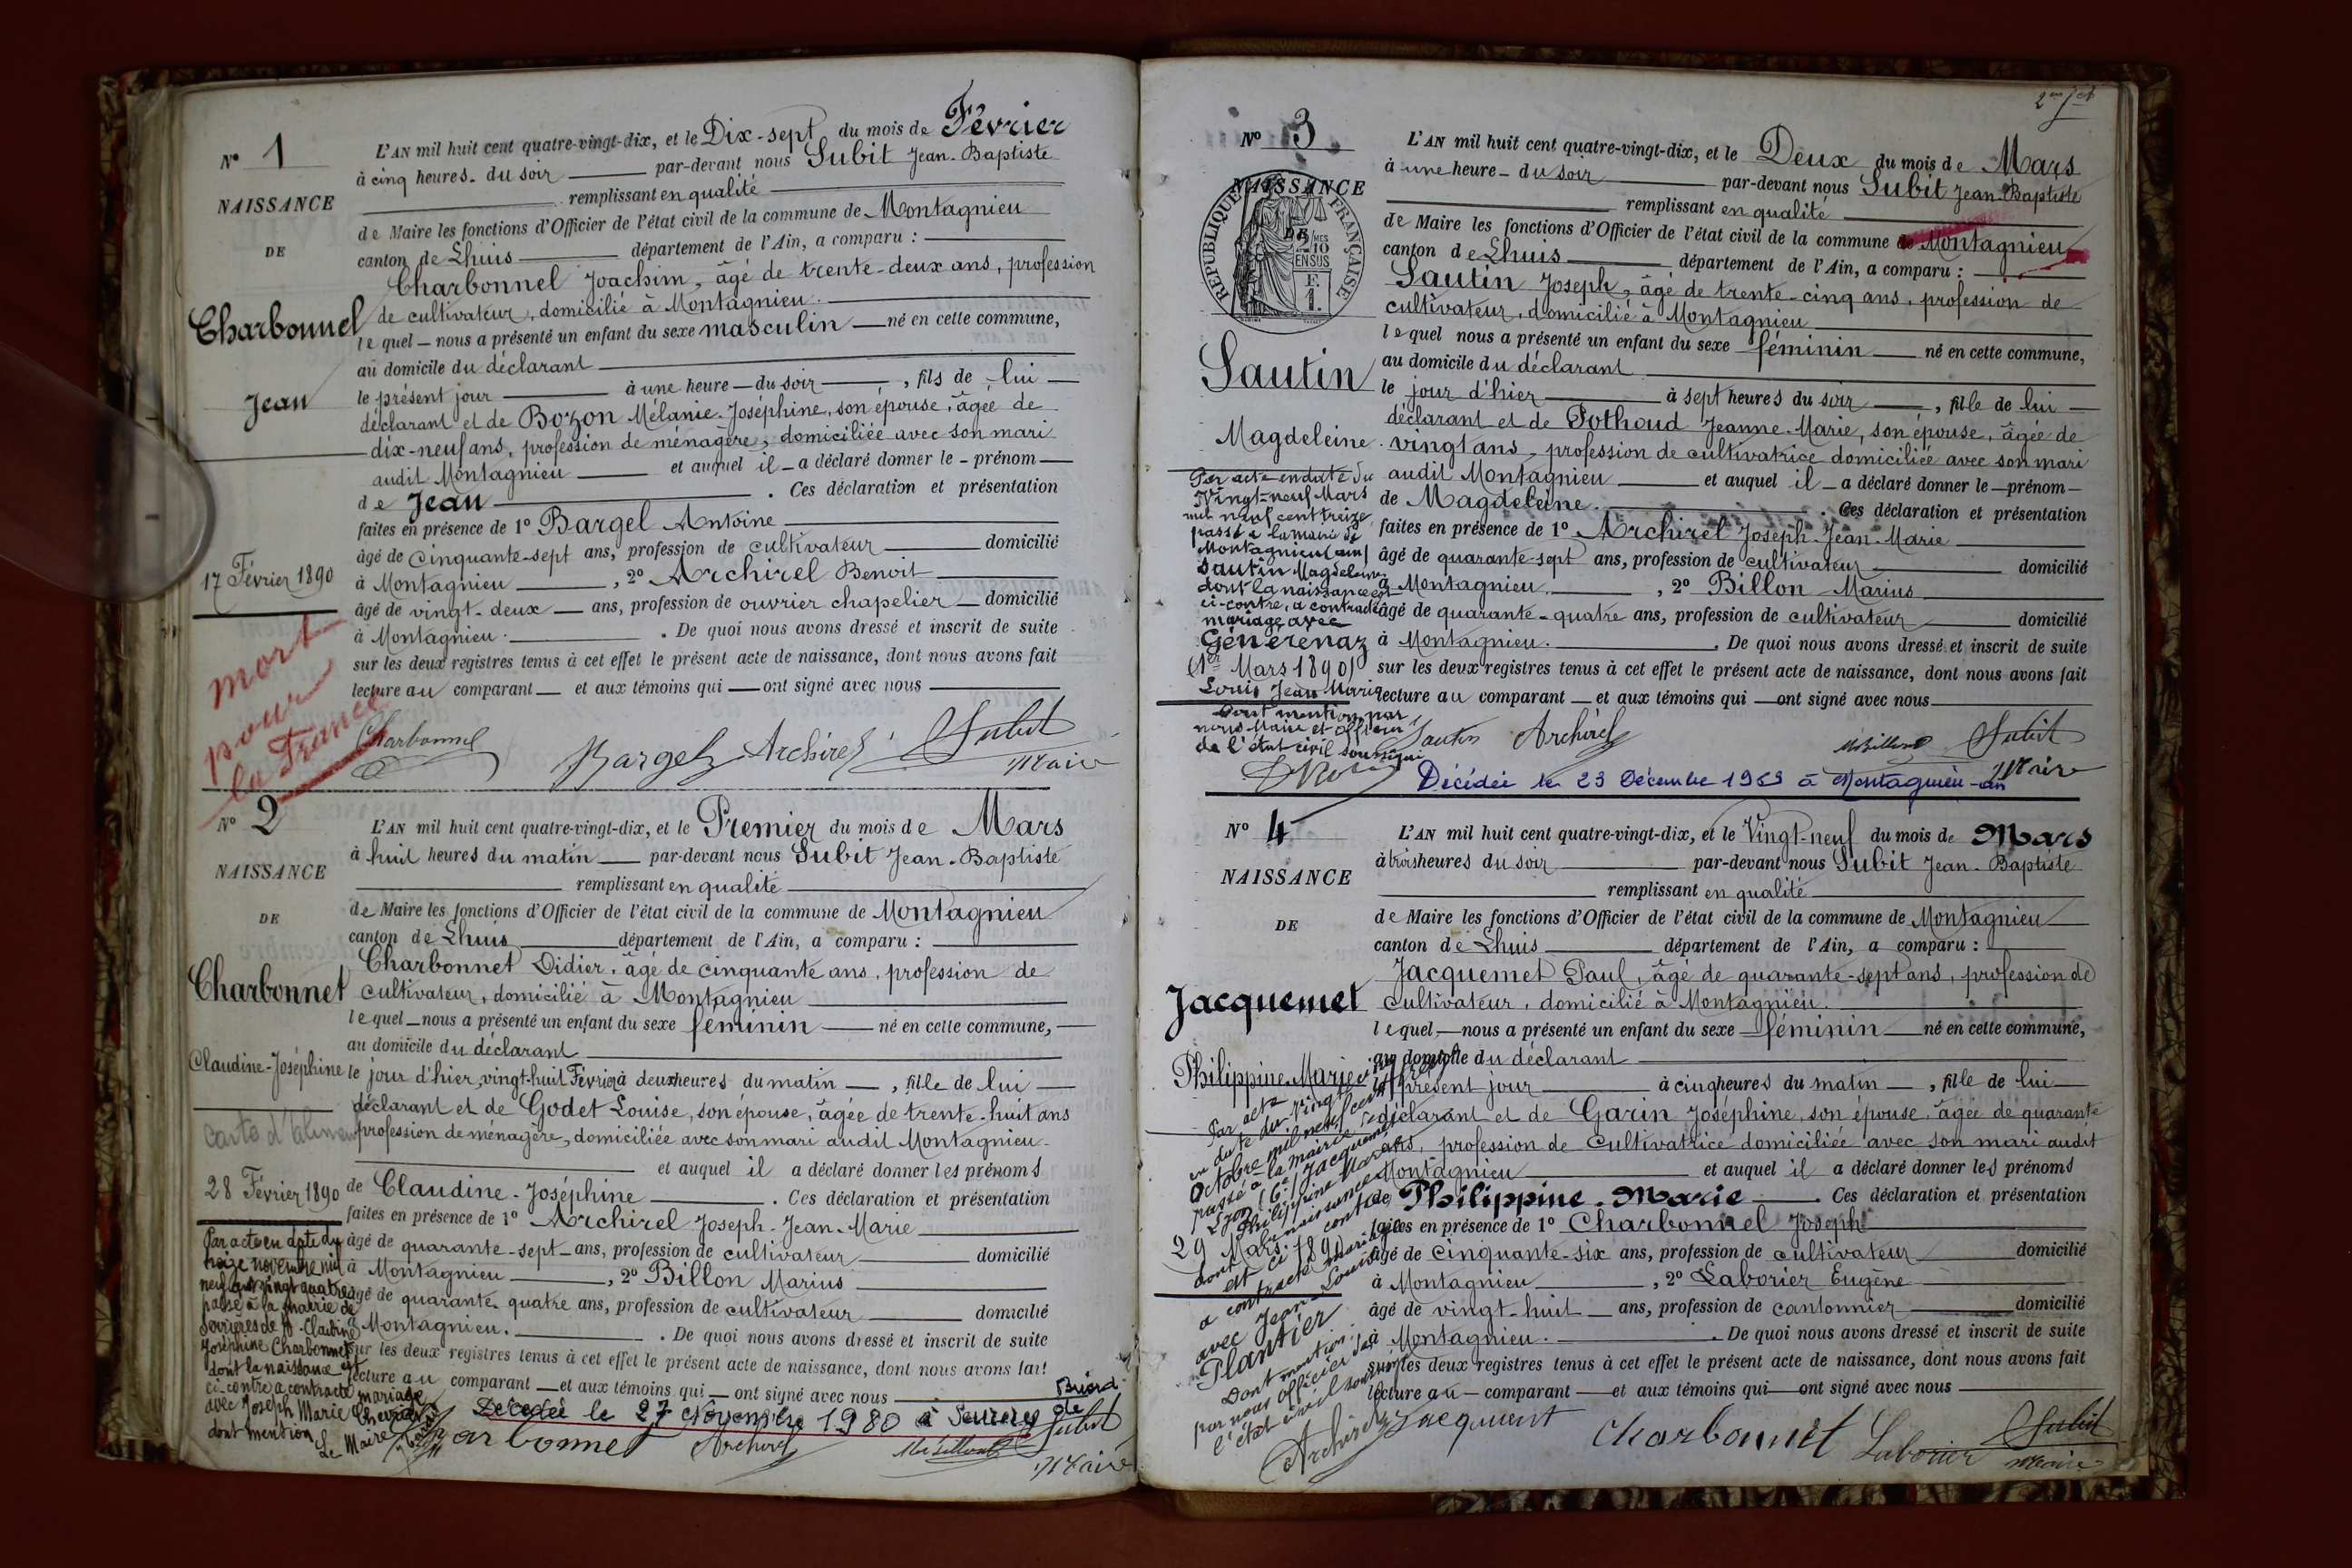 Nº 1
NAISSANCE
DE
Charbonnel
Jean
17 Février 1890
mort
pour
la France
L'AN mil huit cent quatre-vingt-dix, et le Dix-sept du mois de Février
à cinq heures du soir par-devant nous Subit Jean-Baptiste
remplissant en qualité
de Maire les fonctions d'Officier de l'état civil de la commune de Montagnieu
canton de Lhuis département de l'Ain, a comparu :
Charbonnel Joachim, âgé de trente-deux ans, profession
de cultivateur, domicilié à Montagnieu.
lequel nous a présenté un enfant du sexe masculin né en cette commune,
au domicile du déclarant
le présent jour à une heure du soir, fils de lui
déclarant et de Bozon Mélanie-Joséphine, son épouse, âgée de
dix-neuf ans, profession de ménagère, domiciliée avec son mari
audit Montagnieu et auquel il a déclaré donner le prénom
de Jean. Ces déclaration et présentation
faites en présence de 1º Bargel Antoine
âgé de cinquante-sept ans, profession de cultivateur domicilié
à Montagnieu, 2º Archirel Benoit
âgé de vingt-deux ans, profession de ouvrier chapelier domicilié
à Montagnieu. De quoi nous avons dressé et inscrit de suite
sur les deux registres tenus à cet effet le présent acte de naissance, dont nous avons fait
lecture au comparant et aux témoins qui ont signé avec nous
Charbonnel Bargel Archirel Subit
Maire
Nº 2
NAISSANCE
DE
Charbonnet
Claudine-Joséphine
28 Février 1890
Par acte en date du
treize novembre mil
neuf cent vingt quatre
passé à la mairie de
Serrières de B. Claudine
Joséphine Charbonnet
dont la naissance est
ci-contre a contracté mariage
avec Joseph Marie
dont mention
Le Maire
L'AN mil huit cent quatre-vingt-dix, et le Premier du mois de Mars
à huit heures du matin par-devant nous Subit Jean-Baptiste
remplissant en qualité
de Maire les fonctions d'Officier de l'état civil de la commune de Montagnieu
canton de Lhuis département de l'Ain, a comparu :
Charbonnet Didier, âgé de cinquante ans, profession de
cultivateur, domicilié à Montagnieu
lequel nous a présenté un enfant du sexe féminin né en cette commune,
au domicile du déclarant
le jour d'hier, vingt-huit Février à deux heures du matin, fille de lui
déclarant et de Godet Louise, son épouse, âgée de trente-huit ans
profession de ménagère, domiciliée avec son mari audit Montagnieu
et auquel il a déclaré donner les prénoms
de Claudine-Joséphine. Ces déclaration et présentation
faites en présence de 1º Archirel Joseph-Jean-Marie
âgé de quarante-sept ans, profession de cultivateur domicilié
à Montagnieu, 2º Billon Marius
âgé de quarante-quatre ans, profession de cultivateur domicilié
à Montagnieu. De quoi nous avons dressé et inscrit de suite
sur les deux registres tenus à cet effet le présent acte de naissance, dont nous avons fait
lecture au comparant et aux témoins qui ont signé avec nous
Décédée le 27 Novembre 1980 à Serrières de Briord
Charbonnet Archirel M Billon Subit
Maire
Nº 3
NAISSANCE
DE
RÉPUBLIQUE FRANÇAISE
2/10 MES
EN SUS
F.
1.
Sautin
Magdeleine
Par acte en date du
Vingt-neuf Mars
mil neuf cent treize
passé à la mairie de
Montagnieu (ain)
Sautin Magdeleine
dont la naissance est
ci-contre, a contracté
mariage avec
Génerenaz
(1er Mars 1890)
Louis Jean Marie
Dont mention par
nous Maire et officier
de l'état civil soussigné
L'AN mil huit cent quatre-vingt-dix, et le Deux du mois de Mars
à une heure du soir par-devant nous Subit Jean-Baptiste
remplissant en qualité
de Maire les fonctions d'Officier de l'état civil de la commune de Montagnieu
canton de Lhuis département de l'Ain, a comparu :
Sautin Joseph, âgé de trente-cinq ans, profession de
cultivateur, domicilié à Montagnieu
lequel nous a présenté un enfant du sexe féminin né en cette commune,
au domicile du déclarant
le jour d'hier à sept heures du soir, fille de lui
déclarant et de Pothoud Jeanne-Marie, son épouse, âgée de
vingt ans, profession de cultivatrice domiciliée avec son mari
audit Montagnieu et auquel il a déclaré donner le prénom
de Magdeleine. Ces déclaration et présentation
faites en présence de 1º Archirel Joseph-Jean-Marie
âgé de quarante-sept ans, profession de cultivateur domicilié
à Montagnieu, 2º Billon Marius
âgé de quarante-quatre ans, profession de cultivateur domicilié
à Montagnieu. De quoi nous avons dressé et inscrit de suite
sur les deux registres tenus à cet effet le présent acte de naissance, dont nous avons fait
lecture au comparant et aux témoins qui ont signé avec nous
Sautin Archirel M Billon Subit
Maire
Décédée le 23 Décembre 1969 à Montagnieu-ain
Nº 4
NAISSANCE
DE
Jacquemet
Philippine-Marie
29 Mars 1890
Par acte
en date du vingt cinq
Octobre mil neuf cent treize
passé à la mairie de
Lyon (6e) Jacquemet
Philippine Marie
dont la naissance
est ci contre
a contracté mariage
avec Jean Louis
Plantier
Dont mention
par nous officier de
l'état civil soussigné
Archirel
L'AN mil huit cent quatre-vingt-dix, et le Vingt-neuf du mois de Mars
à trois heures du soir par-devant nous Subit Jean-Baptiste
remplissant en qualité
de Maire les fonctions d'Officier de l'état civil de la commune de Montagnieu
canton de Lhuis département de l'Ain, a comparu :
Jacquemet Paul, âgé de quarante-sept ans, profession de
cultivateur, domicilié à Montagnieu.
lequel nous a présenté un enfant du sexe féminin né en cette commune,
au domicile du déclarant
le présent jour à cinq heures du matin, fille de lui
déclarant et de Garin Joséphine, son épouse, âgée de quarante
ans, profession de cultivatrice domiciliée avec son mari audit
Montagnieu et auquel il a déclaré donner les prénoms
de Philippine-Marie. Ces déclaration et présentation
faites en présence de 1º Charbonnel Joseph
âgé de cinquante-six ans, profession de cultivateur domicilié
à Montagnieu, 2º Laborier Eugène
âgé de vingt-huit ans, profession de cantonnier domicilié
à Montagnieu. De quoi nous avons dressé et inscrit de suite
sur les deux registres tenus à cet effet le présent acte de naissance, dont nous avons fait
lecture au comparant et aux témoins qui ont signé avec nous
Jacquemet Charbonnel Laborier Subit
maire